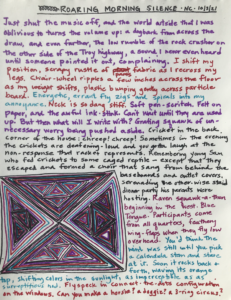 ROARING MORNING SILENCE - NC - 10/3/21
Just shut the music off, and the world outside that I was
oblivious to turns the volume up: a dogbark from across the
draw, and even farther, the low rumble of the rock crusher on
the other side of the Troy highway, a sound I never even heard
until someone pointed it out, complaining. I shift my
position, scrapy rustle of fabric as I recross my
legs. Chair wheel ripples a few inches across the floor
as my weight shifts, plastic bumping gently across particle
board. Energetic, errant fly
annoyance. Neck is so dang stiff. Soft pen-scritch. Felt on
paper, and the awful ink-stink. Can't wait until they are used
up. But then what will I write with? Grating squawk of un-
necessary worry being pushed aside. Cricket in the back
corner of the house (chreep! chreep). Sometimes in the evening
the crickets are deafening-loud and you often laugh at the
non-response that racket represents. Remembering young Simon,
who fed crickets to some caged reptile - except that they
escaped and formed a choir that sang from behind the
baseboards and outlet covers,
serenading the otherwise staid
dinner party his parents were
hosting. Raven Squawk-a-thon
beginning at the
Tongue. Participants come
from all quarters, feathery
wing-flaps when they fly low
overhead. You'd think the
wash was still until you pick
a calendula stem and stare
at it. How it rocks back &
forth, waving its orangey
top, shifting colors in the sunlight, as imperceptible as as
atmospheric nod. Flyspeck in connect-the-dots configuration
on the windows. Can you make a horsie? A doggie? A 3-ring circus?